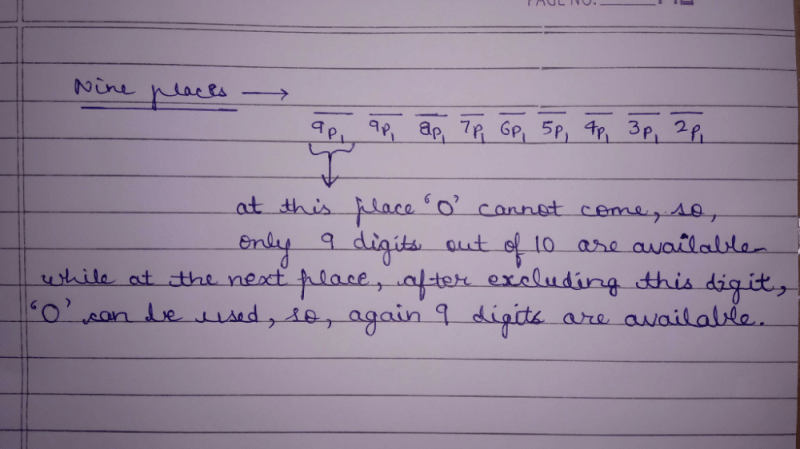 PAGE NO.
Nine places →
9P₁ 9P₁ 8P₁ 7P₁ 6P₁ 5P₁ 4P₁ 3P₁ 2P₁
at this place '0' cannot come, so,
only 9 digits out of 10 are available
while at the next place, after excluding this digit,
'0' can be used, so, again 9 digits are available.